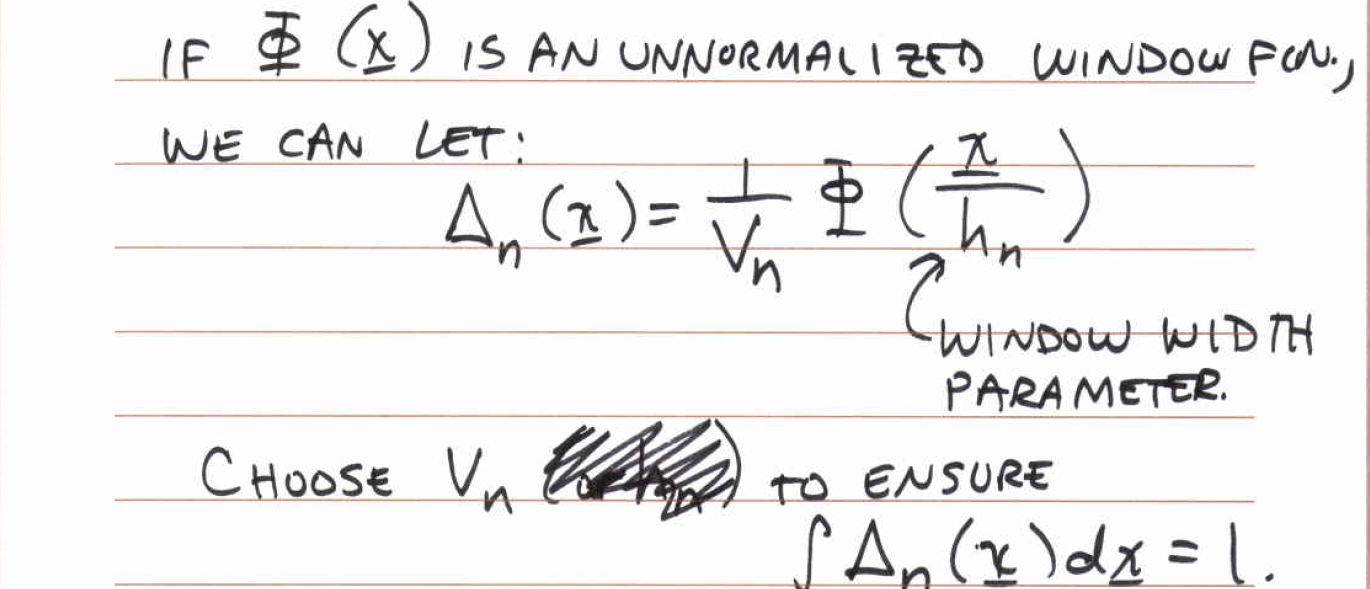 IF Φ (x) IS AN UNNORMALIZED WINDOW FCN.,
WE CAN LET:
Δn (x) = 1/Vn Φ (x/hn)
WINDOW WIDTH
PARAMETER.
CHOOSE Vn TO ENSURE
∫ Δn (x) dx = 1.